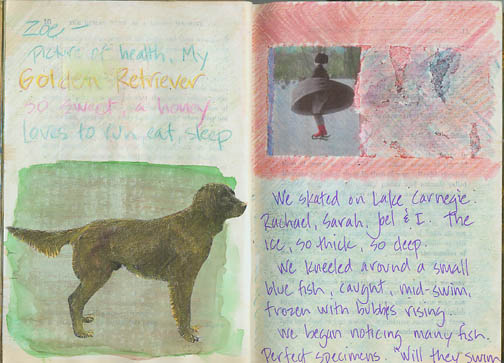 Zoë —
picture of health. My
Golden Retriever
so sweet, a honey
loves to run, eat, sleep
We skated on Lake Carnegie.
Rachael, Sarah, Joel & I. The
ice, so thick, so deep.
We kneeled around a small
blue fish, caught, mid-swim,
frozen with bubbles rising.
We began noticing many fish.
Perfect specimens. "Will they swim